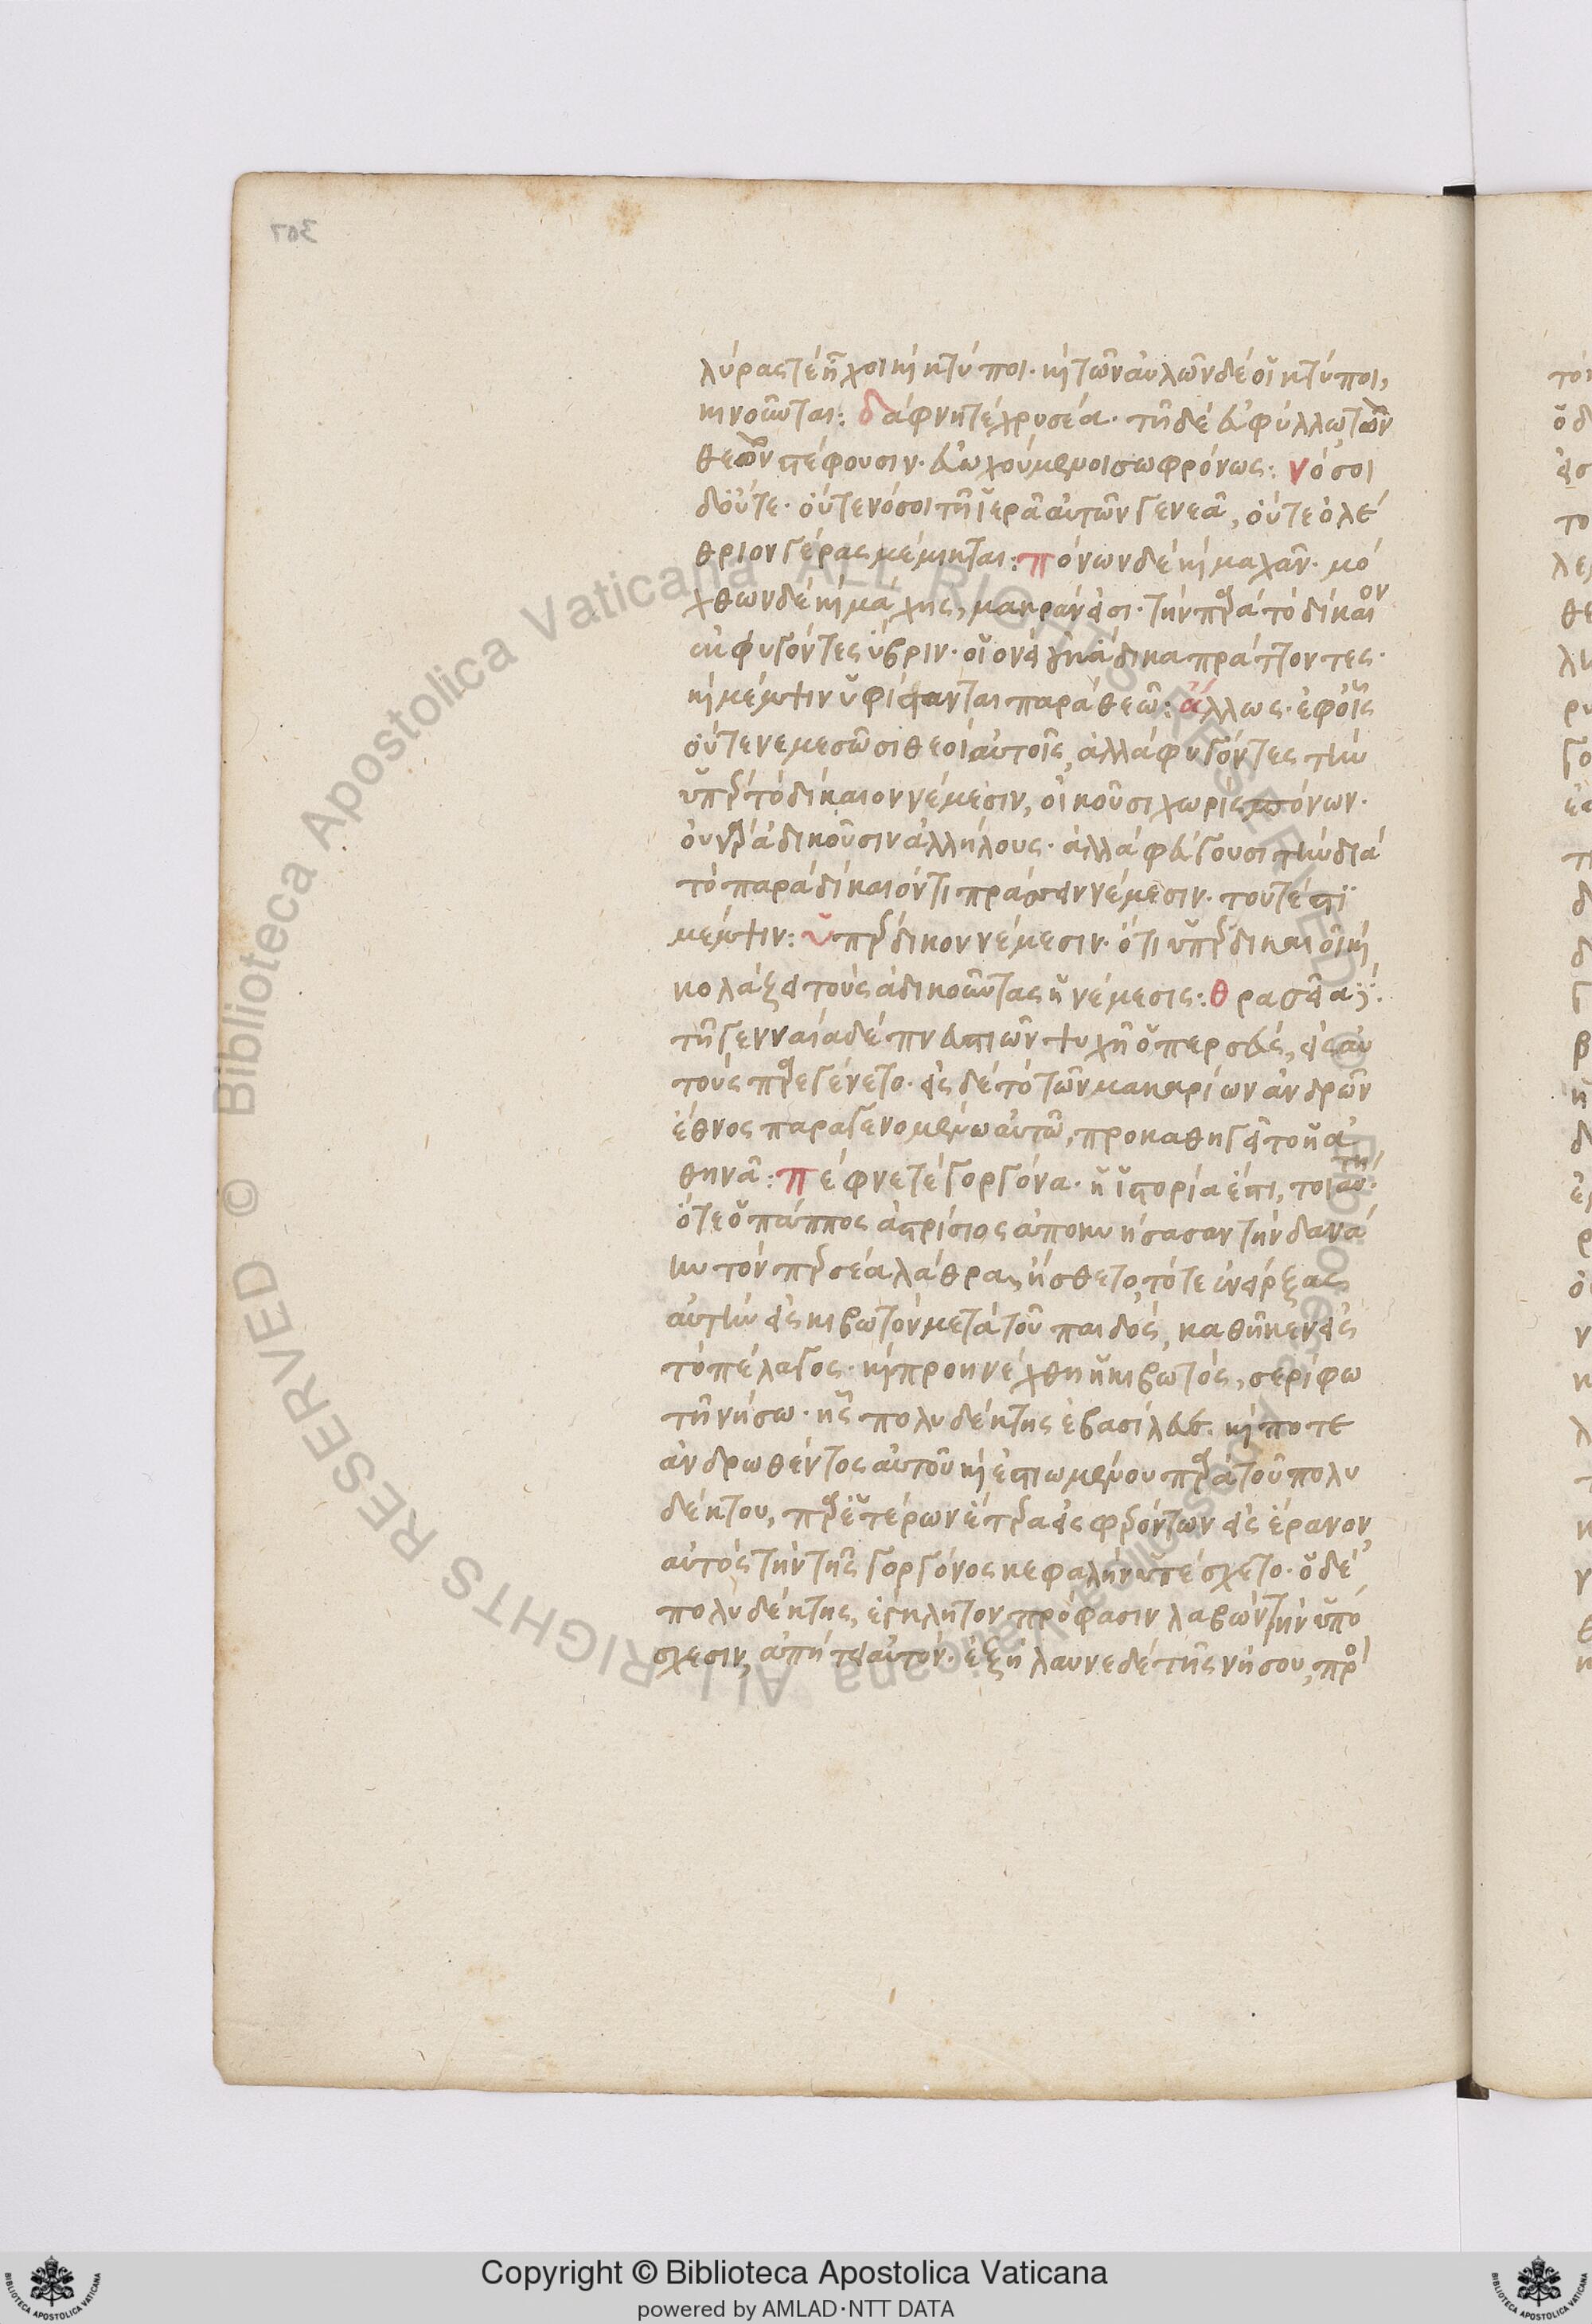 λύρας τὲ ἦχοι κὶ κτύποι· κὶ τῶν αὐλῶν δὲ οἱ κτύποι,
κινοῦνται: δάφνη τὲ χρυσέα· τῆ δὲ εὐφύλλω τῶν
θεῶν στέφουσιν· εὐωχούμενοι σωφρόνως: νόσοι
δ' οὔτε· οὔτε νόσοι τῆ ἱερᾶ αὐτῶν γενεᾶ, οὔτε ὀλέ
θριον γέρας μέμικται: πόνων δὲ κὶ μαχᾶν· μό
χθων δὲ κὶ μάχης, μακρὰν εἰσι· τὴν παρὰ τὸ δίκαιον
ἐκφυγόντες ὕβριν· οἱονεὶ μὴ ἄδικα πράττοντες·
κὶ μέμψιν ὑφίστανται παρὰ θεῶ: ἄλλως· ἐφ' οἷς
οὔτε νεμεσῶσι θεοὶ αὐτοῖς, ἀλλὰ φυγόντες τὴν
ὑπὲρ τὸ δίκαιον νέμεσιν, οἰκοῦσι χωρὶς πόνων·
οὐ γὰρ ἀδικοῦσιν ἀλλήλους· ἀλλὰ φεύγουσι τὴν διὰ
τὸ παρὰ δίκαιόν τι πράσσειν νέμεσιν· τουτέστι
μέμψιν: ὑπέρδικον νέμεσιν· ὅτι ὑπερδικαιοῖ κὶ
κολάζει τοὺς ἀδικοῦντας ἡ νέμεσις: θρασεία·
τῆ γενναία δὲ πνευστιῶν ψυχῆ ὁ περσεὺς, εἰς αὐ
τοὺς παρεγένετο· εἰς δὲ τὸ τῶν μακαρίων ἀνδρῶν
ἔθνος παραγενομένω αὐτῶ, προκαθηγεῖτο ἡ ἀ
θηνᾶ: πέφνε τὲ γοργόνα· ἡ ἱστορία ἐστι, τοιαύτη·
ὅτε ὁ πάππος ἀκρίσιος ἀποκυήσασαν τὴν δανά
ην τὸν περσέα λάθρα, ἤσθετο, τότε ἐνείρξας
αὐτὴν εἰς κιβωτὸν μετὰ τοῦ παιδὸς, καθῆκεν εἰς
τὸ πέλαγος· κὶ προηνέχθη ἡ κιβωτὸς, σερίφω
τῆ νήσω· ἧς πολυδέκτης ἐβασίλευε· κὶ ποτε
ἀνδρωθέντος αὐτοῦ κὶ ἑστιωμένου παρὰ τοῦ πολυ
δέκτου, παρ' ἑτέρων ἕτερα εἰς φερόντων εἰς ἔρανον
αὐτὸς τὴν τῆς γοργόνος κεφαλὴν ὑπέσχετο· ὁ δὲ
πολυδέκτης, ἔγκλητον πρόφασιν λαβὼν τὴν ὑπό
σχεσιν, ἀπήτει αὐτὸν· ἐξήλαυνε δὲ τῆς νήσου, πρὸ